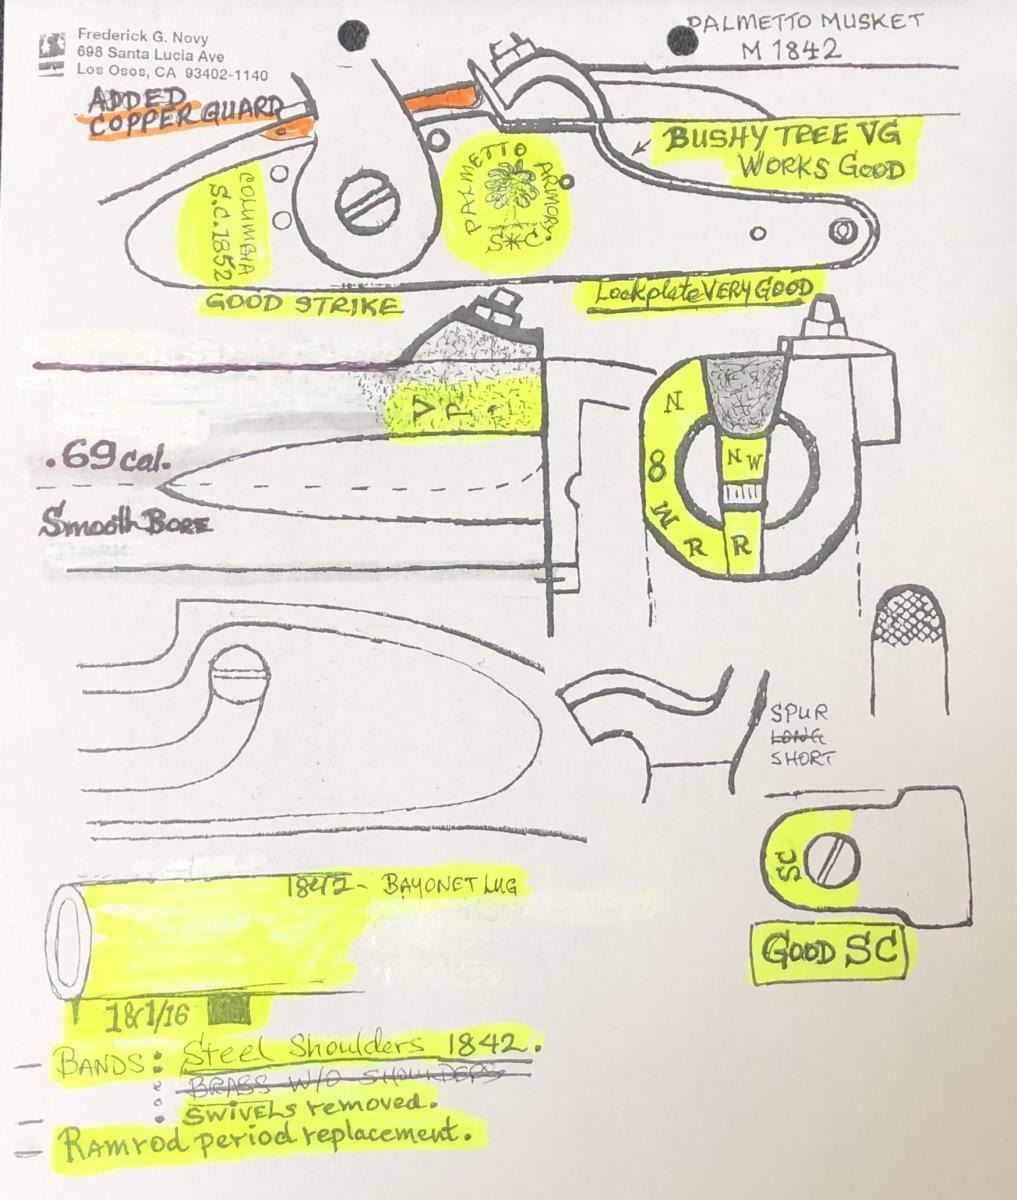 Frederick G. Novy
698 Santa Lucia Ave
Los Osos, CA 93402-1140
PALMETTO MUSKET
M 1842
ADDED
COPPER GUARD
BUSHY TREE VG
WORKS GOOD
COLUMBIA
S.C. 1852
PALMETTO ARMORY
S*C
GOOD STRIKE
Lockplate VERY GOOD
V
P
.69 cal.
Smooth BORE
N
8
M
R
NW
R
SPUR
LONG
SHORT
SC
GOOD SC
1842 - BAYONET LUG
1&1/16
BANDS: Steel Shoulders 1842.
BRASS W/O SHOULDERS
SWIVELS removed.
Ramrod period replacement.